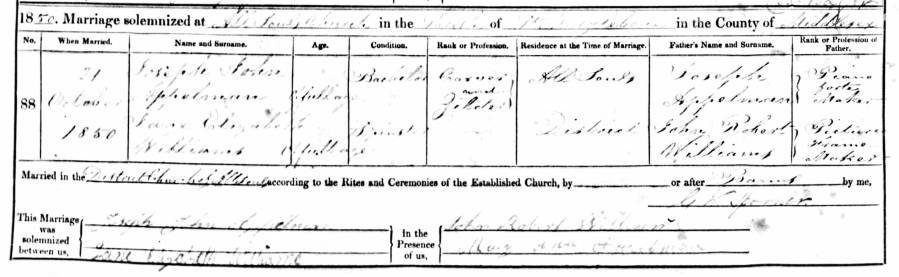 1850. Marriage solemnized at All Souls Church in the of in the County of Middlesex
No. When Married. Name and Surname. Age. Condition. Rank or Profession. Residence at the Time of Marriage. Father's Name and Surname. Rank or Profession of Father.
88 21 October 1850 Joseph John Appelman Full Age Bachelor Carver and Gilder All Souls Joseph Appelman Piano Forte Maker
Jane Elizabeth Williams Full Age Spinster District John Robert Williams Picture Frame Maker
Married in the District Church according to the Rites and Ceremonies of the Established Church, by or after Banns by me,
This Marriage was solemnized between us, Joseph John Appelman In the Presence of us, John Robert Williams
Jane Elizabeth Williams Mary Ann Appelman